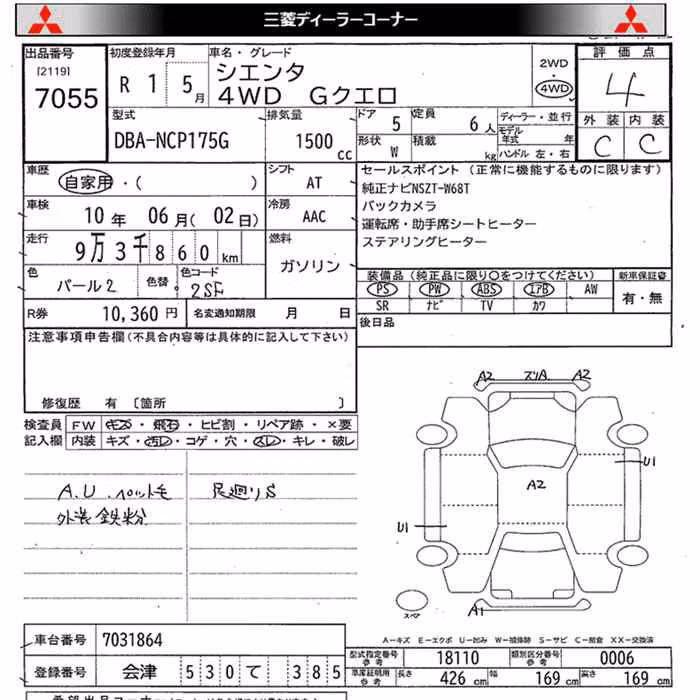 三菱ディーラーコーナー
出品番号 [2119] 7055
初度登録年月 R 1 5月
車名・グレード シエンタ
4WD Gクエロ
2WD・4WD
評価点 4
外装 内装
C C
型式 DBA-NCP175G
排気量 1500cc
ドア 5 定員 6人
形状 W 積載 kg
ディーラー・並行
モデル年式 年
ハンドル 左・右
車歴 自家用・( )
シフト AT
車検 10年 06月(02日)
冷房 AAC
走行 9万3千860km
燃料 ガソリン
色 パール2 色替 色コード 2SF
R券 10,360円 名変通知期限 月 日
セールスポイント (正常に機能するものに限ります)
純正ナビNSZT-W68T
バックカメラ
運転席・助手席シートヒーター
ステアリングヒーター
装備品(純正品に限り○をつけてください) 新車保証書
PS PW ABS エアB AW 有・無
SR ナビ TV カワ
後日品
注意事項申告欄(不具合内容等は具体的に記入して下さい)
修復歴 有 [箇所 ]
検査員記入欄
FW キズ・飛石・ヒビ割・リペア跡・×要
内装 キズ・汚レ・コゲ・穴・スレ・キレ・破レ
A.U. ペット毛 足廻りS
外装鉄粉
A2 ズリA A2
U1
A2
U1
スペア
A1
A-キズ E-エクボ U-凹み W-補修跡 S-サビ C-腐食 XX-交換済
車台番号 7031864
登録番号 会津 530 て 385
型式指定番号 参考 18110 類別区分番号 参考 0006
車庫証明用 参考 長さ 426cm 幅 169cm 高さ 169cm